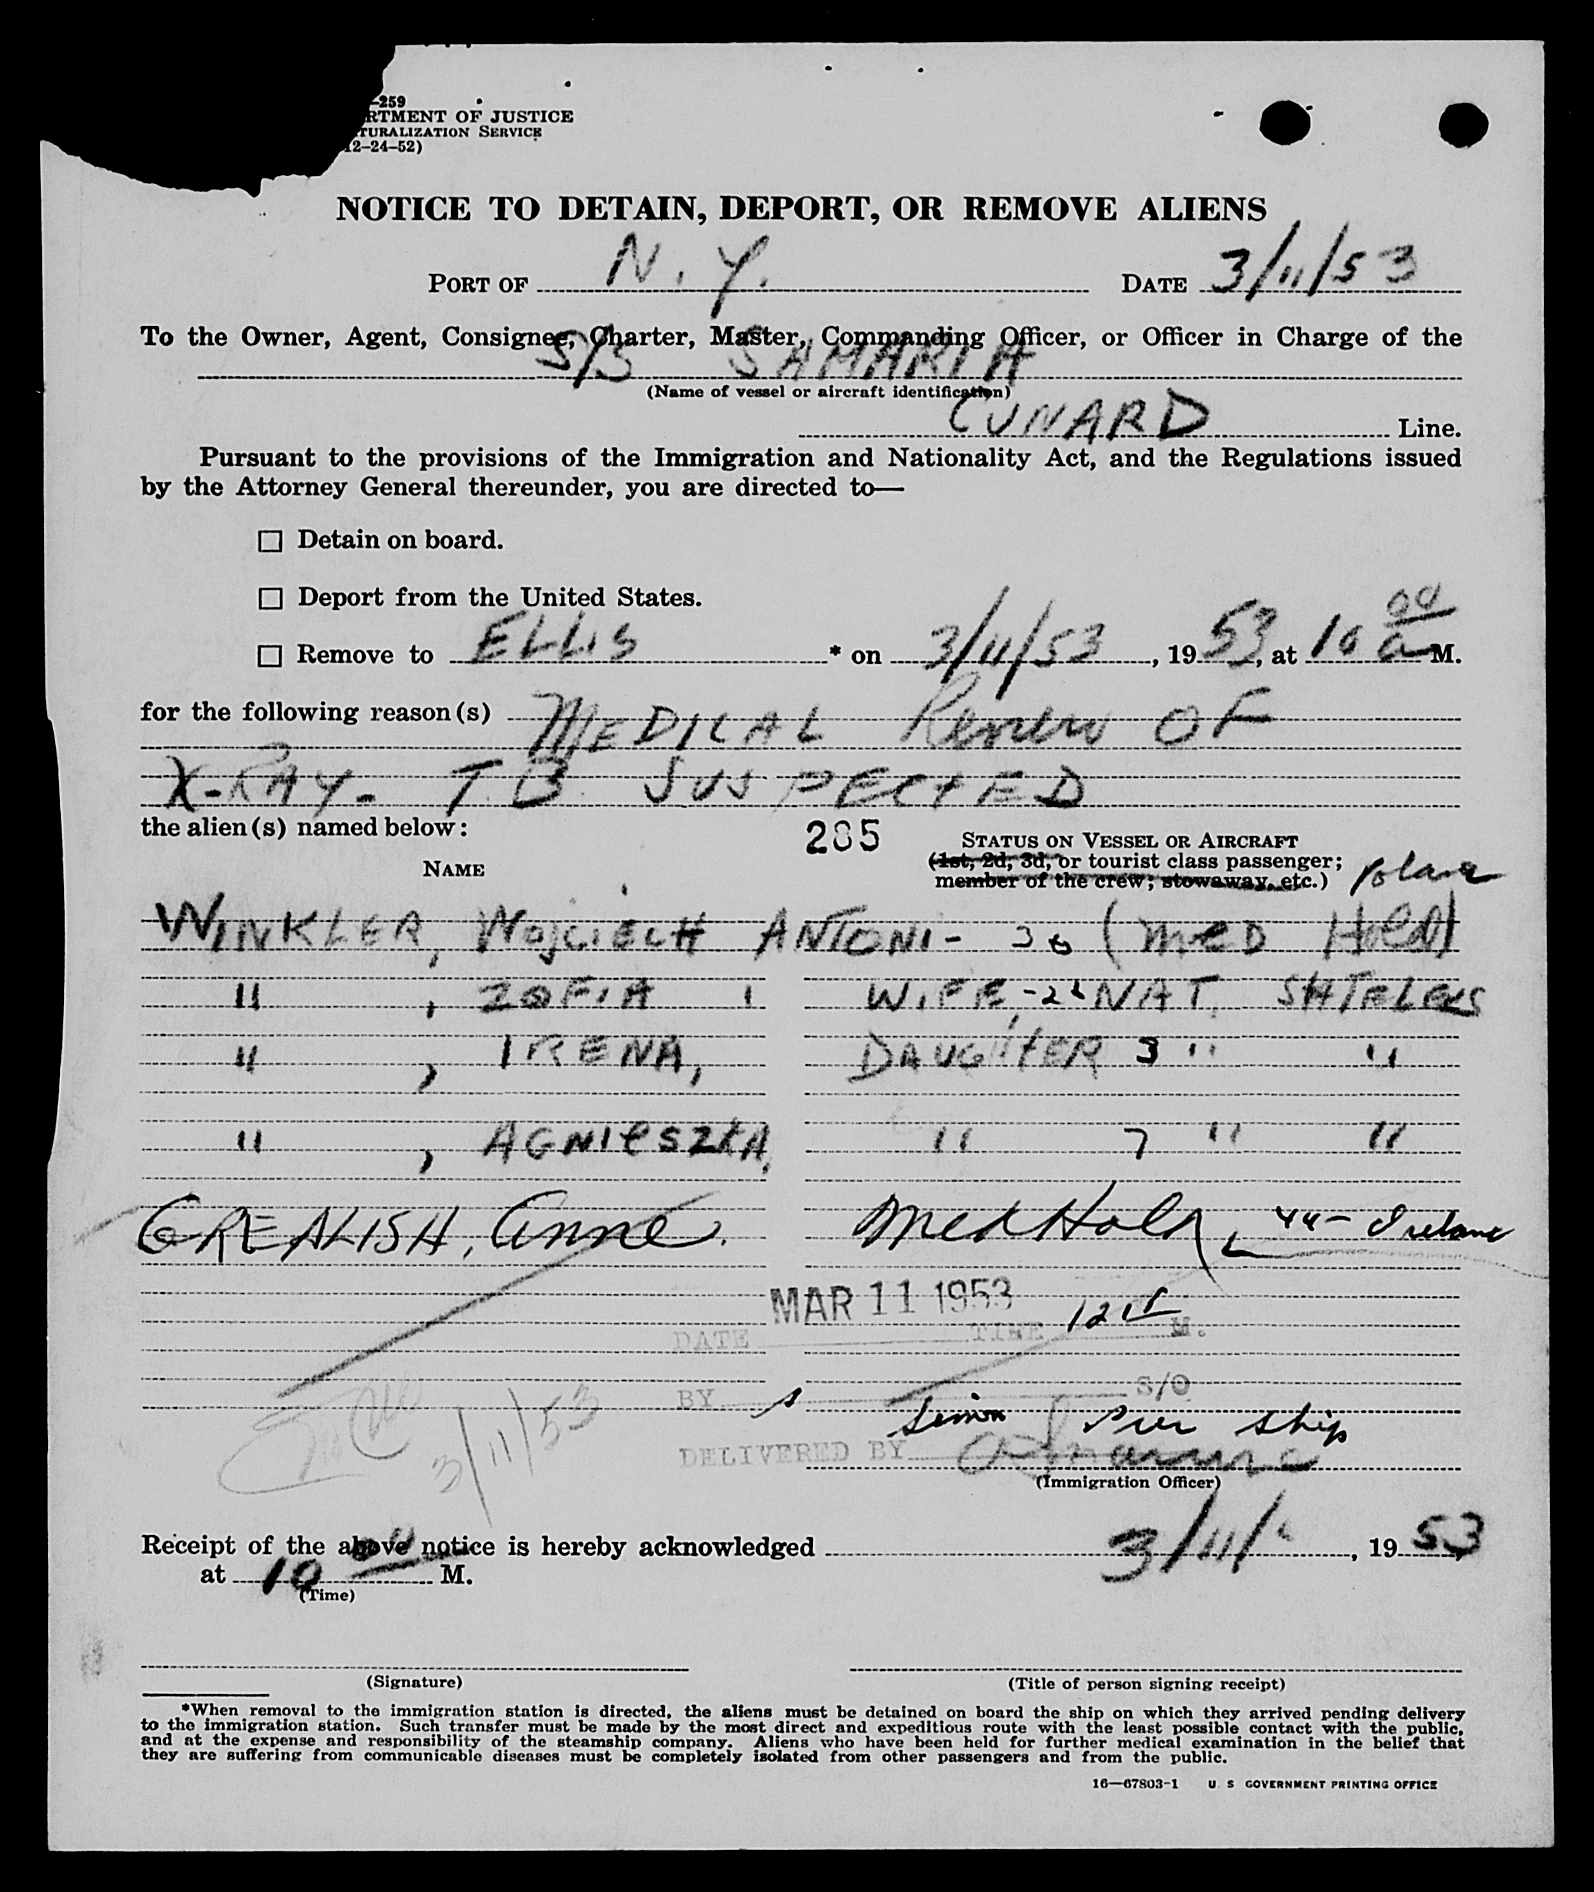 -259
RTMENT OF JUSTICE
TURALIZATION SERVICE
12-24-52)
NOTICE TO DETAIN, DEPORT, OR REMOVE ALIENS
PORT OF N. Y. DATE 3/11/53
To the Owner, Agent, Consignee, Charter, Master, Commanding Officer, or Officer in Charge of the
S/S SAMARIA
(Name of vessel or aircraft identification)
CUNARD Line.
Pursuant to the provisions of the Immigration and Nationality Act, and the Regulations issued
by the Attorney General thereunder, you are directed to—
☐ Detain on board.
☐ Deport from the United States.
☐ Remove to ELLIS * on 3/11/53, 1953, at 10 00 a M.
for the following reason(s) MEDICAL Review OF
X-RAY- T.B. SUSPECTED
the alien(s) named below:
285
STATUS ON VESSEL OR AIRCRAFT
NAME
(1st, 2d, 3d, or tourist class passenger;
member of the crew; stowaway, etc.) Poland
WINKLER, WOJCIECH ANTONI- 36 (MED Hold)
" , ZOFIA WIFE, NAT.
" , IRENA, DAUGHTER 3 " "
" , AGNIESZKA, " 7 " "
GREALISH, Anne. Med Hold, 44- Ireland
MAR 11 1953
DATE TIME M.
3/11/53
BY S/O
Pier Ship
DELIVERED BY
(Immigration Officer)
Receipt of the above notice is hereby acknowledged 3/11/, 1953
at 10 00 M.
(Time)
(Signature) (Title of person signing receipt)
*When removal to the immigration station is directed, the aliens must be detained on board the ship on which they arrived pending delivery
to the immigration station. Such transfer must be made by the most direct and expeditious route with the least possible contact with the public,
and at the expense and responsibility of the steamship company. Aliens who have been held for further medical examination in the belief that
they are suffering from communicable diseases must be completely isolated from other passengers and from the public.
16—67803-1 U S GOVERNMENT PRINTING OFFICE